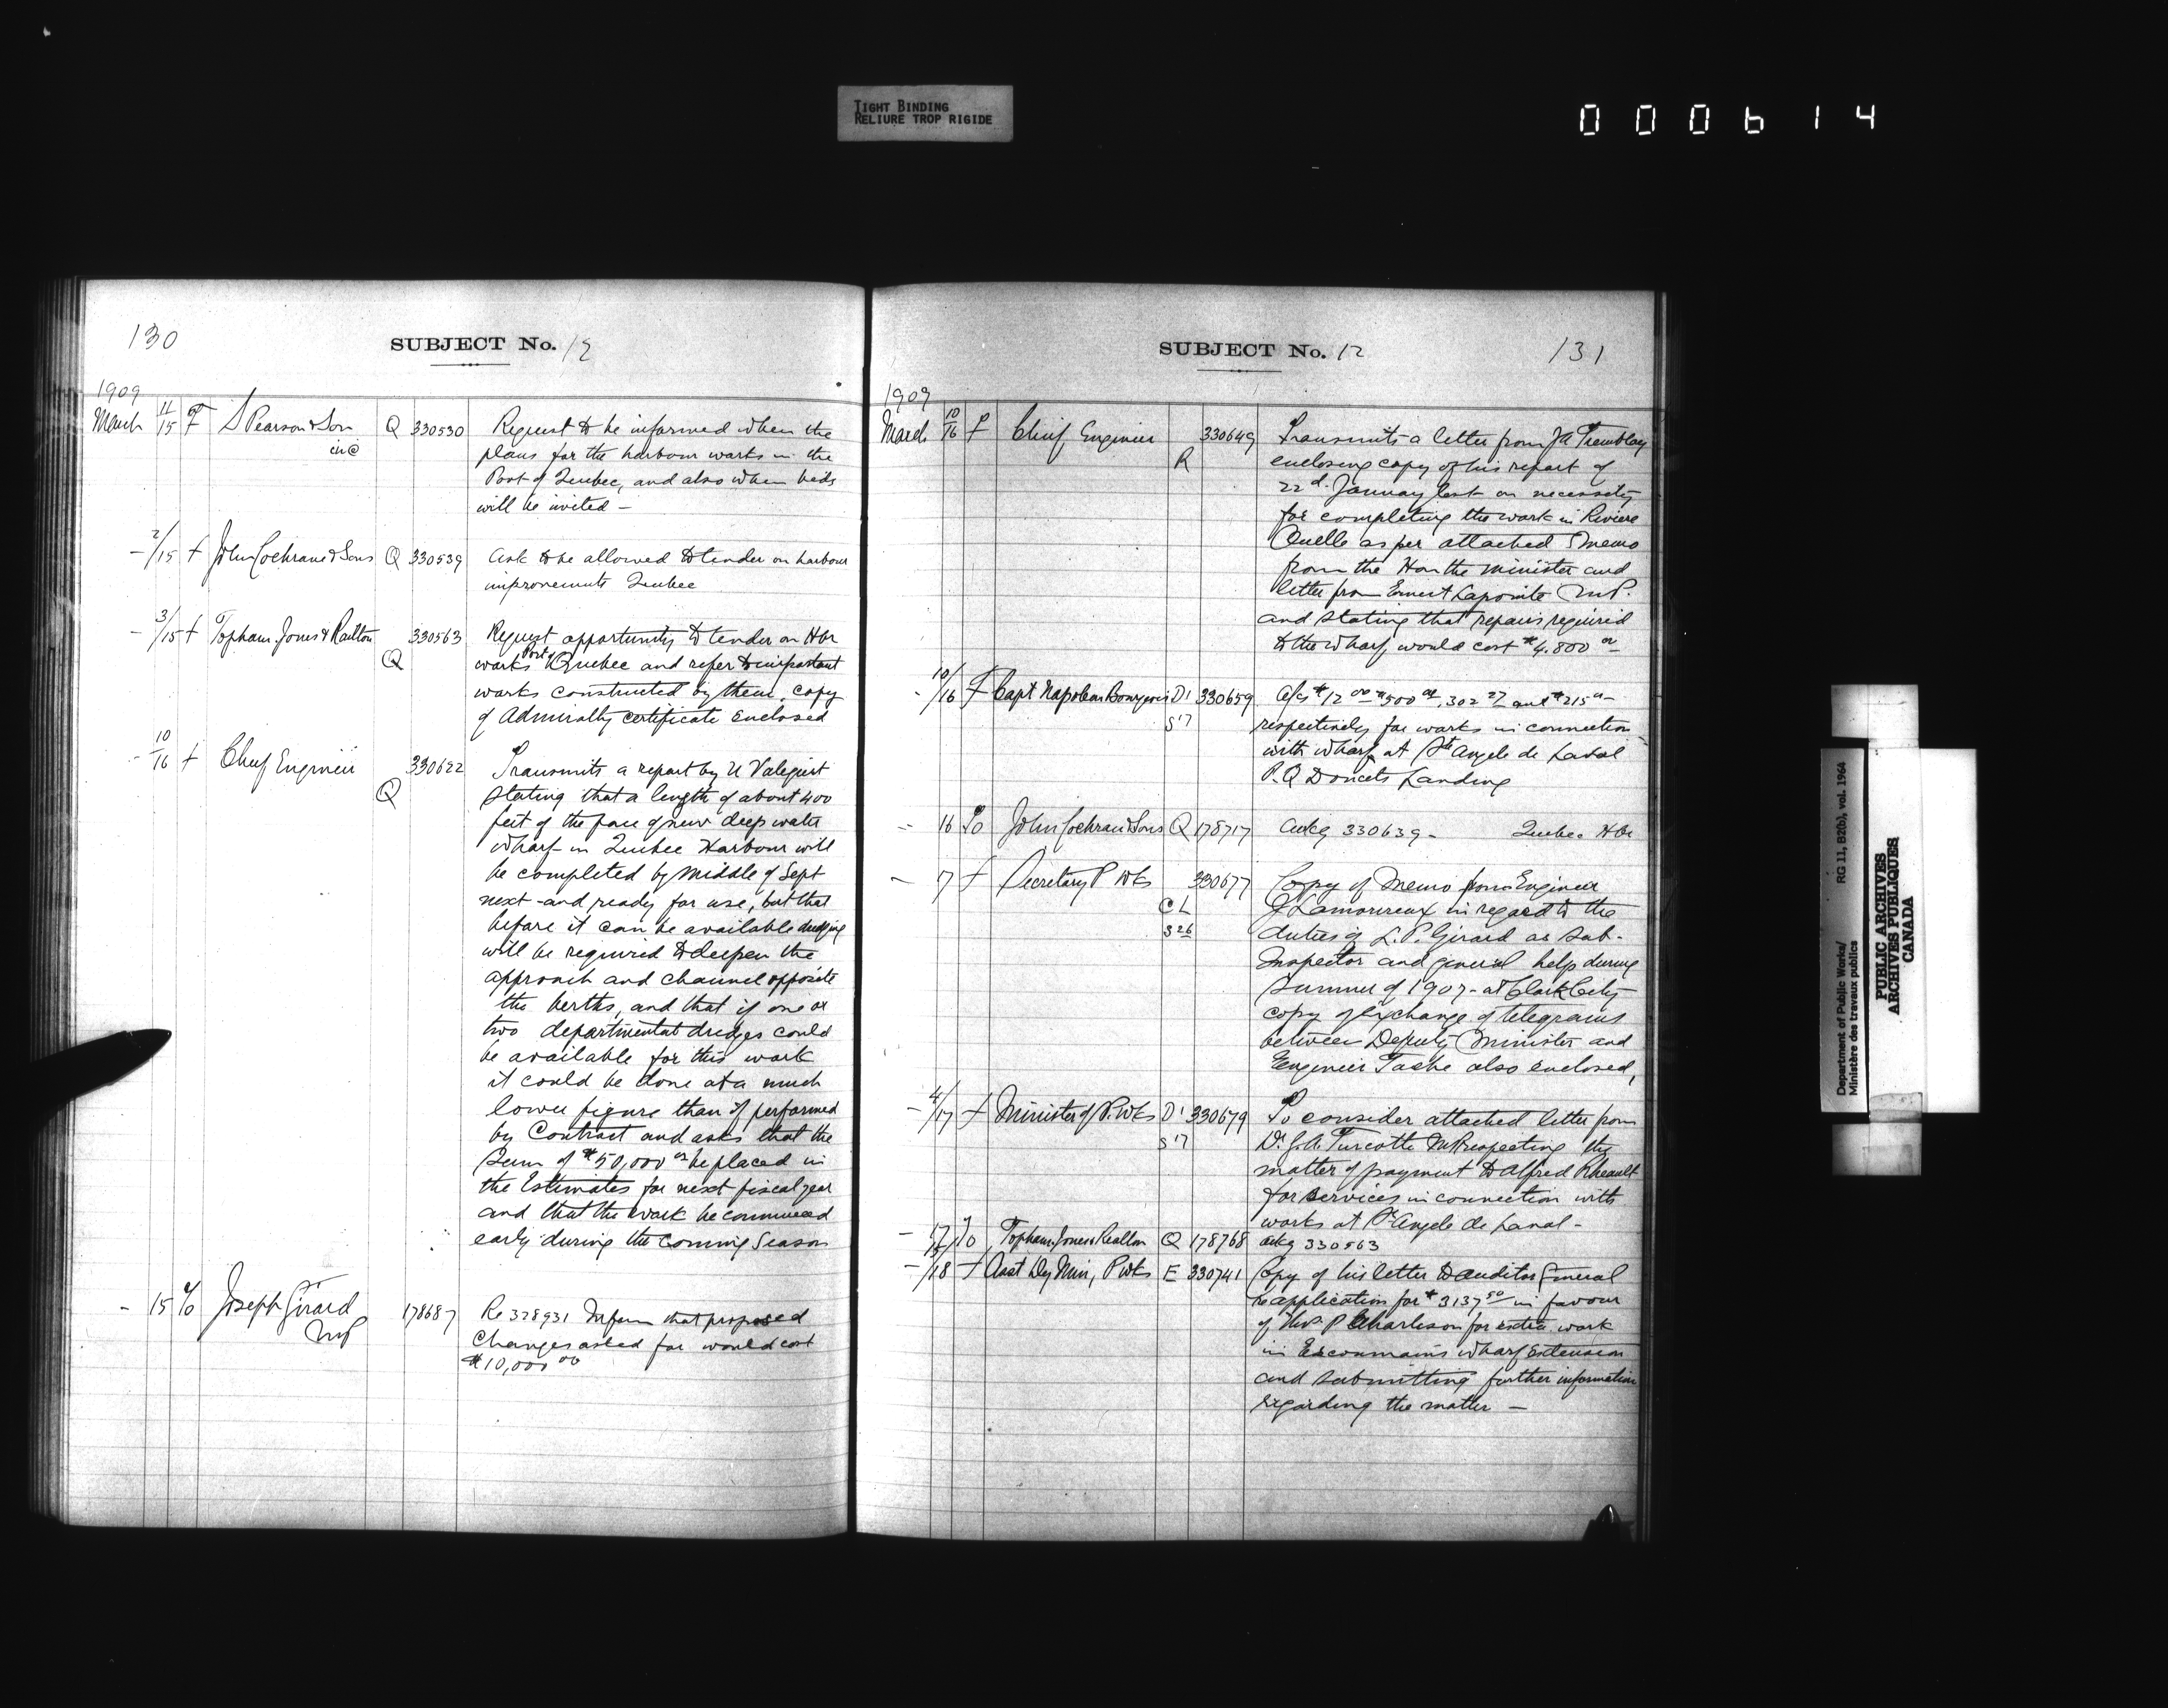 TIGHT BINDING
RELIURE TROP RIGIDE
000614
130
SUBJECT No. 12
1909
March 11/15 F S Pearson & Son Q 330530 Request to be informed when the
inc plans for the harbour works in the
Port of Quebec, and also when bids
will be invited —
- 2/15 F John Cochrane & Sons Q 330539 Ask to be allowed to tender on harbour
improvements Quebec
- 3/15 F Topham. Jones & Railton 330563 Request opportunity to tender on Hbr
Q works Port of Quebec and refer to important
works constructed by them, copy
of Admiralty certificate enclosed
- 10/16 F Chief Engineer 330622 Transmits a report by U Valiquet
Q stating that a length of about 400
feet of the face of new deep water
wharf in Quebec Harbour will
be completed by middle of Sept
next and ready for use, but that
before it can be available dredging
will be required to deepen the
approach and channel opposite
the berths, and that if one or
two departmental dredges could
be available for this work
it could be done at a much
lower figure than if performed
by Contract and asks that the
Sum of $50,000 00 be placed in
the Estimates for next fiscal year
and that the work be commenced
early during the coming Season
- 15 To Joseph Girard 178687 Re 328931 Inform that proposed
MP changes asked for would cost
$10,000 00
SUBJECT No. 12 131
1909
March 10/16 F Chief Engineer 330649 Transmits a letter from JA Tremblay
R enclosing copy of his report of
22d. January last on necessity
for completing the work in Riviere
Ouelle as per attached memo
from the Hon the minister and
letter from Ernest Lapointe M.P.
and stating that repairs required
to the wharf would cost $4.800 00
- 10/16 F Capt Napoleon Bourgeois D1 330659 A/cs $12 00 $500 00, 302 27 and $215 00
S17 respectively for works in connection
with wharf at Ste Angele de Laval
P.Q Doucets Landing
- 16 To John Cochran & Sons Q 178717 Ackg 330639 - Quebec Hbr
- 17 F Secretary P Wks 330677 Copy of Memo from Engineer
CL J Lamoureux in regard to the
S26 duties of L. P. Girard as sub-
Inspector and general help during
Summer of 1907 - at Clark City
copy of exchange of telegrams
between Deputy Minister and
Engineer Tache also enclosed,
- 4/17 F Minister of P. Wks D1 330679 To consider attached letter from
S17 Dr. J.A. Turcotte MP respecting the
matter of payment to Alfred Rheault
for services in connection with
works at St Angele de Laval -
- 17 To Topham. Jones & Realton Q 178768 ackg 330563
- 18 F Asst Dy Min, P Wks E 330741 Copy of his letter to Auditor General
re application for $3137 50 in favour
of P Charleson for extra work
in Escoumains wharf extension
and submitting further information
regarding the matter —
Department of Public Works/ RG 11, B2(b), vol. 1964
Ministère des travaux publics
PUBLIC ARCHIVES
ARCHIVES PUBLIQUES
CANADA